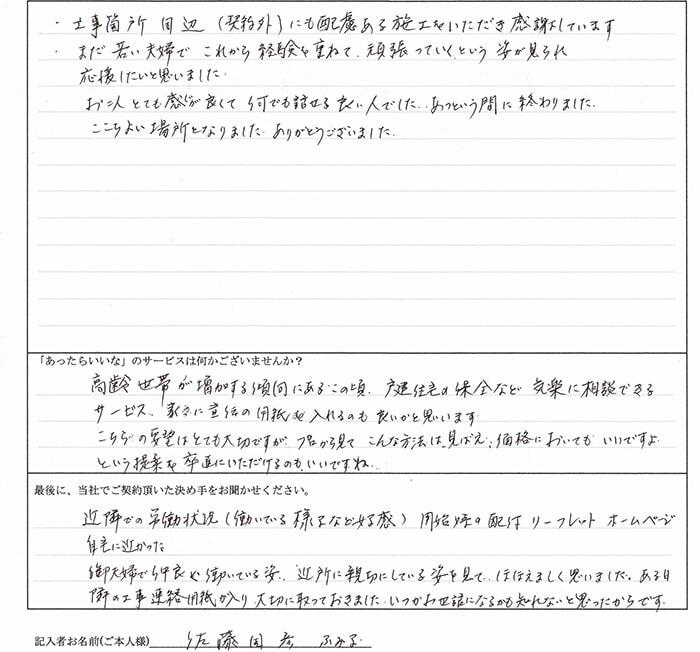 ・工事箇所周辺（契約外）にも配慮ある施工をいただき感謝しています
・まだ若い夫婦で これから経験を重ねて、頑張っていくという姿が見られ
応援したいと思いました。
お二人とても感じが良くて何でも話せる良い人でした。あっという間に終わりました。
ここちよい場所となりました。ありがとうございました。
「あったらいいな」のサービスは何かございませんか？
高齢世帯が増加する傾向にあるこの頃、戸建住宅の保全など気楽に相談できる
サービス、家々に宣伝の用紙を入れるのも良いかと思います
こちらの要望はとても大切ですが、プロから見て こんな方法は、見ばえ、価格においてもいいですよ
という提案を率直にいただけるのもいいですね。
最後に、当社でご契約頂いた決め手をお聞かせください。
近隣での労働状況（働いている様子など好感）開始時の配付 リーフレット ホームページ
自宅に近かった
御夫婦で仲良く働いている姿、近所に親切にしている姿を見て、ほほえましく思いました。ある日
隣の工事連絡用紙が入り大切に取っておきました。いつかお世話になるかも知れないと思ったからです。
記入者お名前(ご本人様) 佐藤 ふみ子